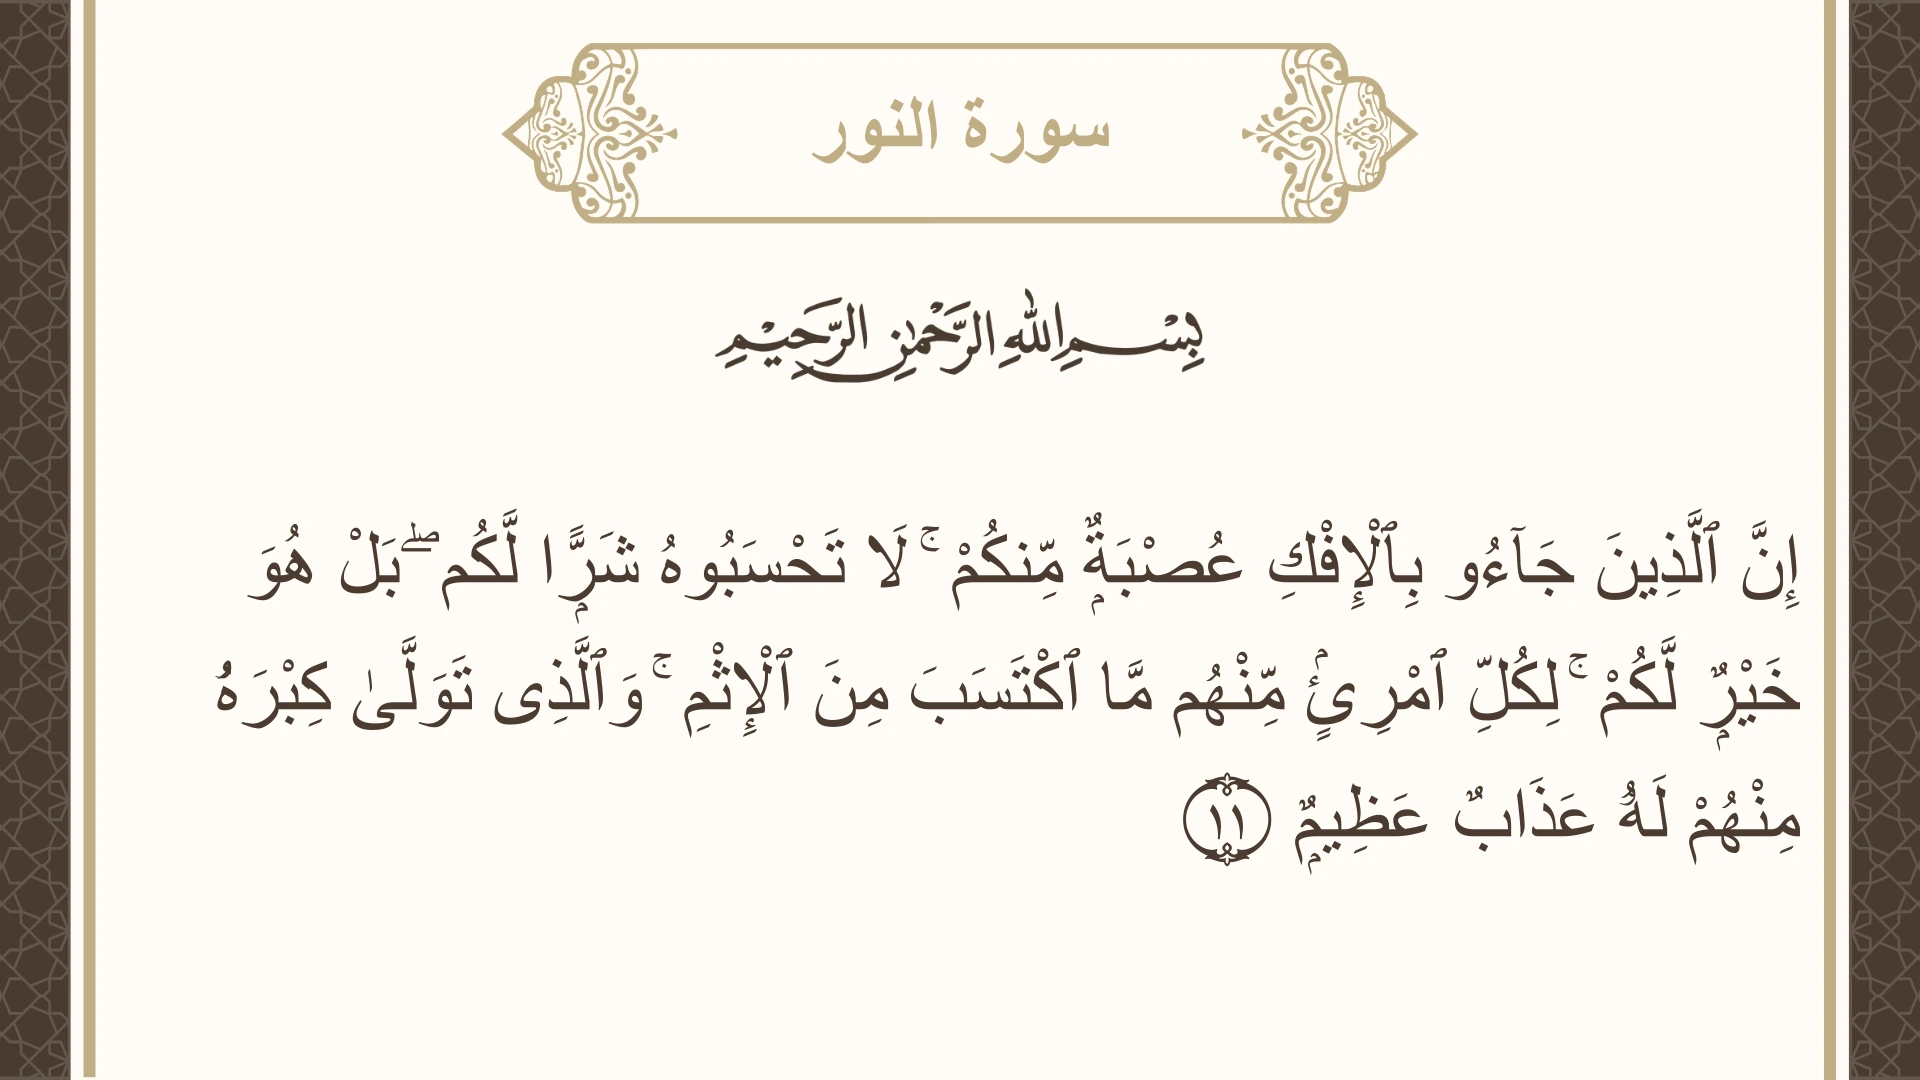 سورة النور
بِسْمِ اللهِ الرَّحْمٰنِ الرَّحِيْمِ
إِنَّ ٱلَّذِينَ جَآءُو بِٱلْإِفْكِ عُصْبَةٌۭ مِّنكُمْ ۚ لَا تَحْسَبُوهُ شَرًّۭا لَّكُم ۖ بَلْ هُوَ
خَيْرٌۭ لَّكُمْ ۚ لِكُلِّ ٱمْرِئٍۢ مِّنْهُم مَّا ٱكْتَسَبَ مِنَ ٱلْإِثْمِ ۚ وَٱلَّذِى تَوَلَّىٰ كِبْرَهُۥ
مِنْهُمْ لَهُۥ عَذَابٌ عَظِيمٌۭ ١١